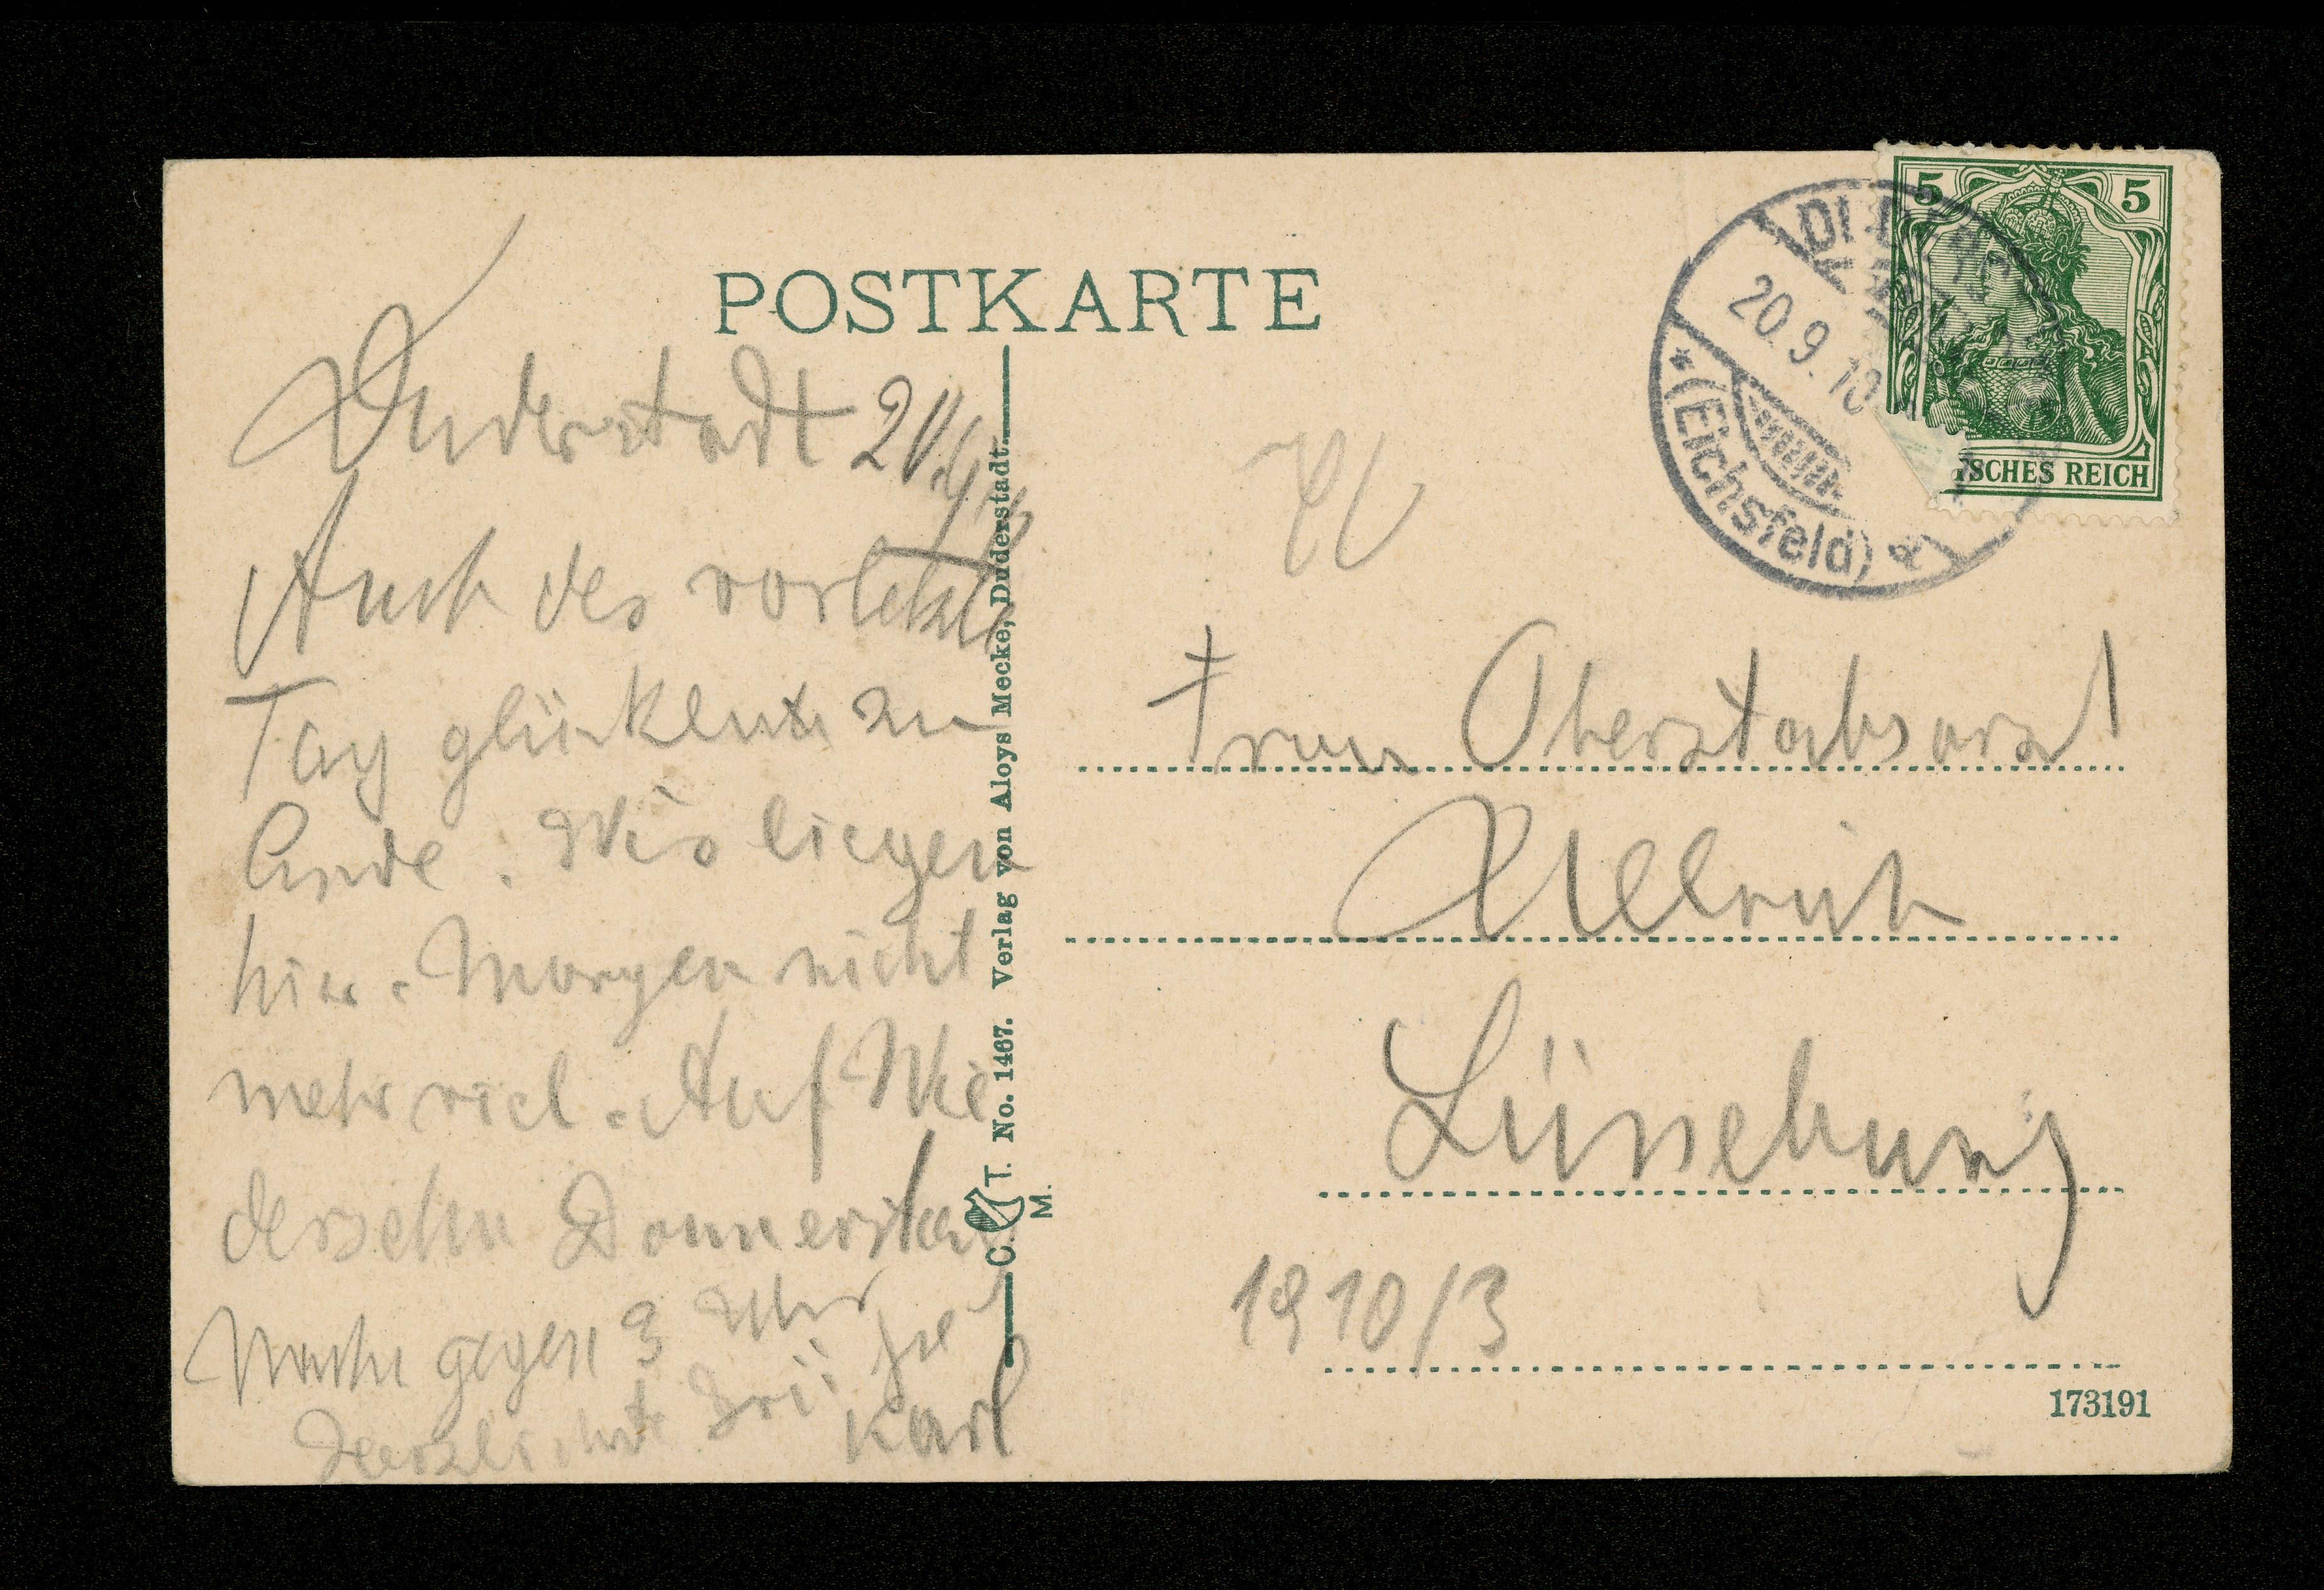 POSTKARTE
Duderstadt 20/9 13
Auch der vorletzte
Tag glücklich zu
Ende. Wir liegen
hier. Morgen nicht
mehr viel. Auf Wie
dersehn Donnerstag
Nachm gegen 3 Uhr
Herzlichste Grüße
Karl
C. T. M. No. 1467. Verlag von Aloys Mecke, Duderstadt.
5 5
SCHES REICH
20.9.13
(Eichsfeld) a
Frau Oberstabsarzt
Ullrich
Lüneburg
1910/3
173191